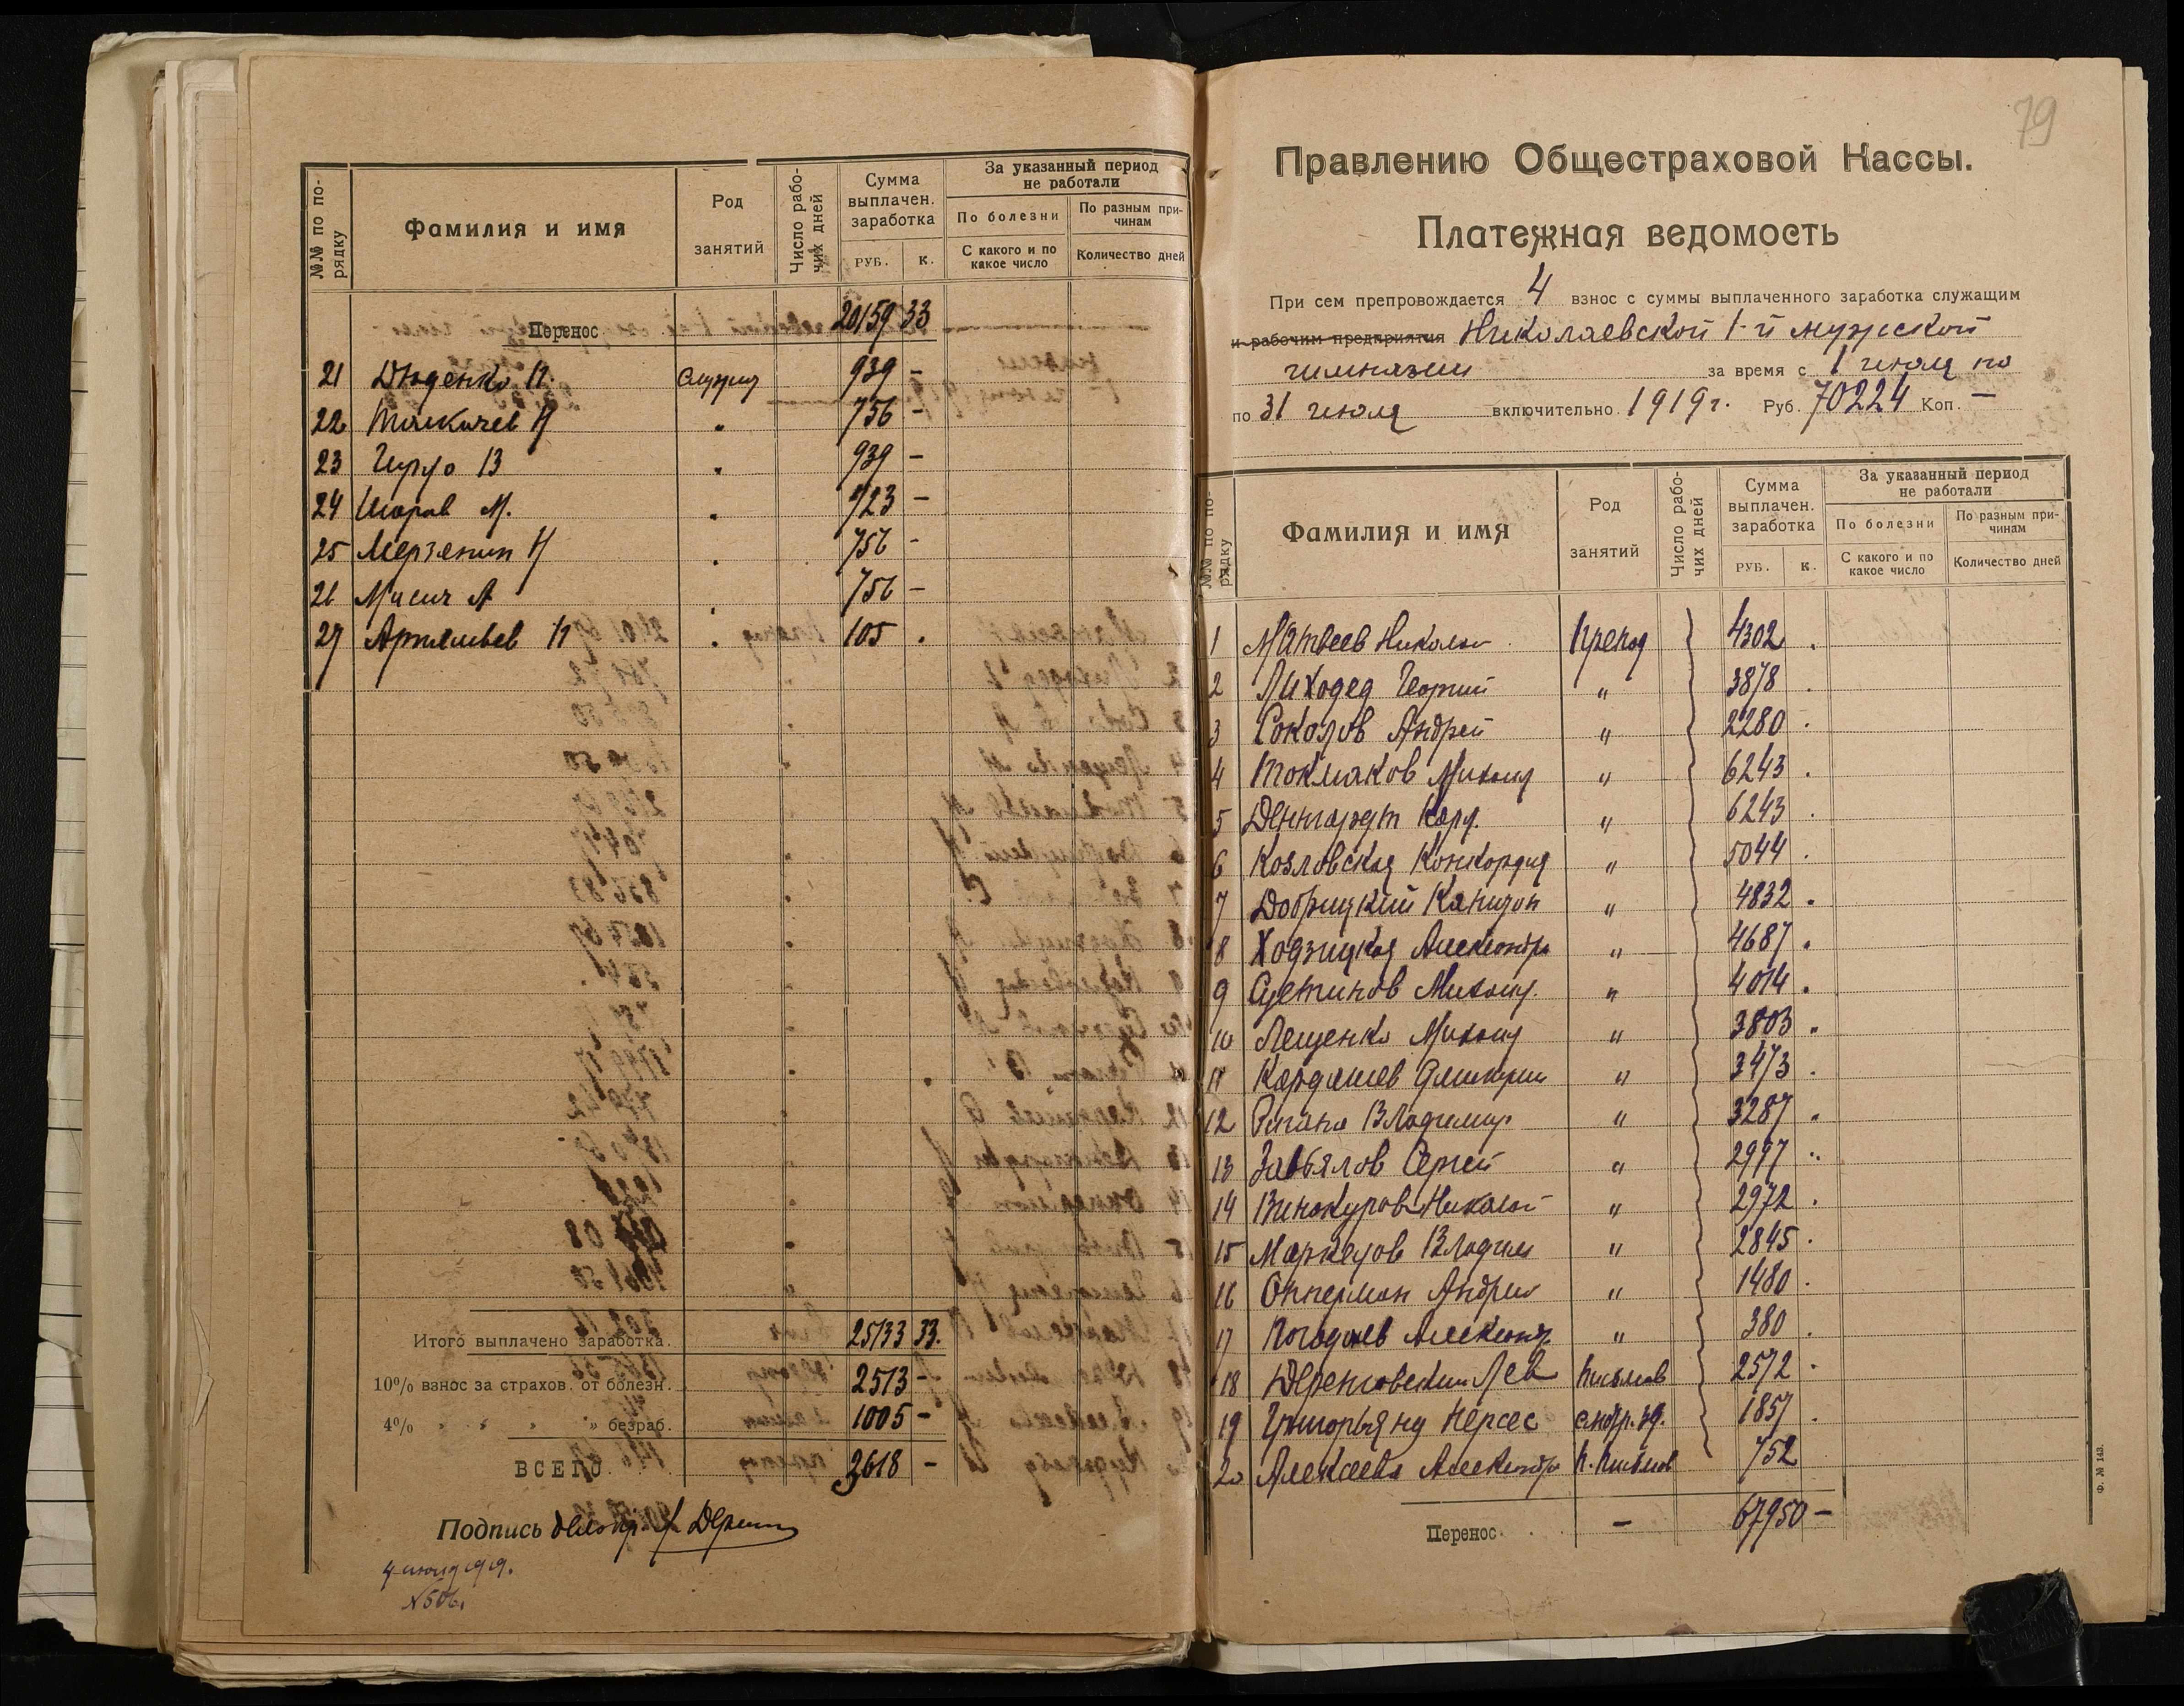 №№ по порядку | Фамилия и имя | Род занятий | Число рабочих дней | Сумма выплачен. заработка РУБ. К. | За указанный период не работали
По болезни С какого и по какое число | По разным причинам Количество дней
Перенос 20159 33
21 Дюденко П. служит 939 –
22 Толкачев Н " 756 –
23 Гурло В " 939 –
24 М. " 723 –
25 Мерзенин Н " 756 –
26 Мисич А " 756 –
27 Артемьев П " 105 .
Итого выплачено заработка. 25133 33.
10% взнос за страхов. от болезн. 2513 –
4% " " " " безраб. 1005 –
ВСЕГО 3618 –
Подпись делопр. Л Дерен
4 июля 1919.
№ 506.
79
Правлению Общестраховой Кассы.
Платежная ведомость
При сем препровождается 4 взнос с суммы выплаченного заработка служащим
и рабочим предприятия Николаевской 1-й мужской
гимназии за время с 1 июля по
по 31 июля включительно 1919 г. Руб. 70224 Коп. –
№№ по порядку | Фамилия и имя | Род занятий | Число рабочих дней | Сумма выплачен. заработка РУБ. К. | За указанный период не работали
По болезни С какого и по какое число | По разным причинам Количество дней
1 Матвеев Николай Препод 4302 .
2 Лиходед Георгий " 3878 .
3 Соколов Андрей " 2280 .
4 Токмаков Михаил " 6243 .
5 Денгардт Карл. " 6243 .
6 Козловская Конкордия " 5044 .
7 Добрицкий Капитон " 4832 .
8 Ходзицкая Александра " 4687 .
9 Сустинов Михаил. " 4014 .
10 Лещенко Михаил " 3803 .
11 Кардашев Дмитрий " 3473 .
12 Владимир " 3287 .
13 Завьялов Сергей " 2997 "
14 Винокуров Николай " 2972 .
15 Маркелов Владим " 2845 .
16 Опперман Андрей " 1480 .
17 Погодаев Александр " 380 .
18 Деренговский Лев Письмов 2572 .
19 Григорьянц Нерсес 1857 .
20 Алексеева Александра п. письмов 752
Перенос – 67950 –
Ф. № 143.